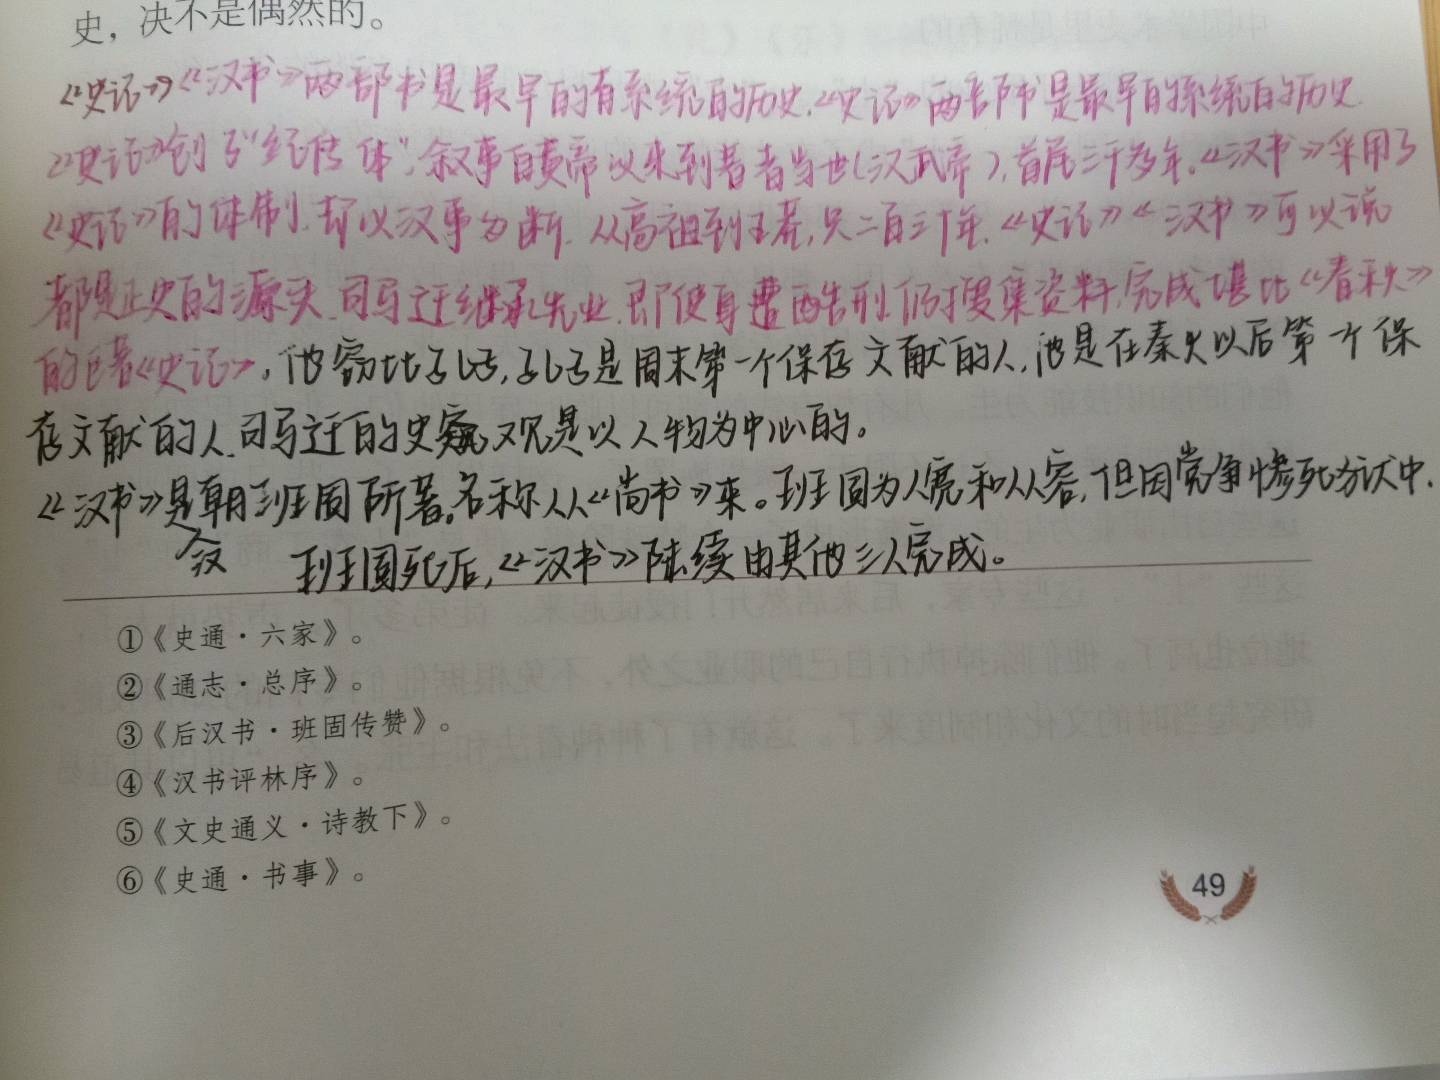 史，决不是偶然的。
《史记》《汉书》两部书是最早的有系统的历史.《史记》两部书是最早的系统的历史.
《史记》创了“纪传体”,叙事自黄帝以来到著者当世(汉武帝),首尾三千多年。《汉书》采用了
《史记》的体制.却以汉事为断.从高祖到王莽,只二百三十年.《史记》《汉书》可以说
都是正史的源头.司马迁继承先业.即使身遭酷刑仍搜集资料,完成堪比《春秋》
的巨著《史记》,他窃比孔子,孔子是周末第一个保存文献的人,他是在秦火以后第一个保
存文献的人.司马迁的史观是以人物为中心的。
《汉书》是朝班固所著。名称从《尚书》来。班固为人宽和从容,但因党争惨死狱中.
汉 班固死后,《汉书》陆续由其他三人完成。
①《史通·六家》。
②《通志·总序》。
③《后汉书·班固传赞》。
④《汉书评林序》。
⑤《文史通义·诗教下》。
⑥《史通·书事》。
49